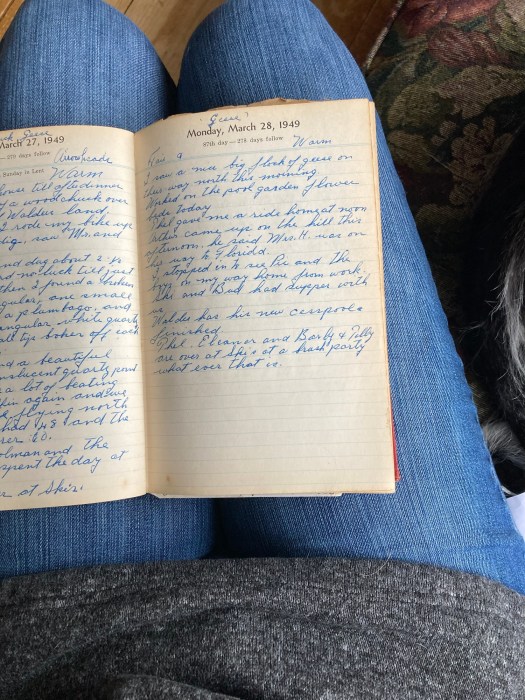 Geese
March 27, 1949
278 days follow
Sunday in Lent
Arrowheads
Warm
house till after dinner
of a woodchuck over
Walden land.
I rode my bike up
dig. saw Mr. and
and dug about 2 ft
had no luck till just
then I found a broken
are small
a plumbago, and
angular white quartz
all tips broken off each
and a beautiful
translucent quartz point
a lot of beating
thin again and we
flying north
had 48 and the
60.
and the
spent the day at
over at Ski's.
"Geese"
Monday, March 28, 1949
87th day — 278 days follow
Warm
I saw a nice big flock of geese on
their way north this morning.
Worked on the pool garden flower
beds today
Phil gave me a ride home at noon
came up on the hill this
afternoon. he said Mrs. H. was on
his way to Florida.
I stopped in to see Pie and the
boys on my way home from work.
She and Bud had supper with
us
has his new cesspool
finished
Phil. Eleanor and Barby & Tilly
are over at Ski's at a party
what ever that is.